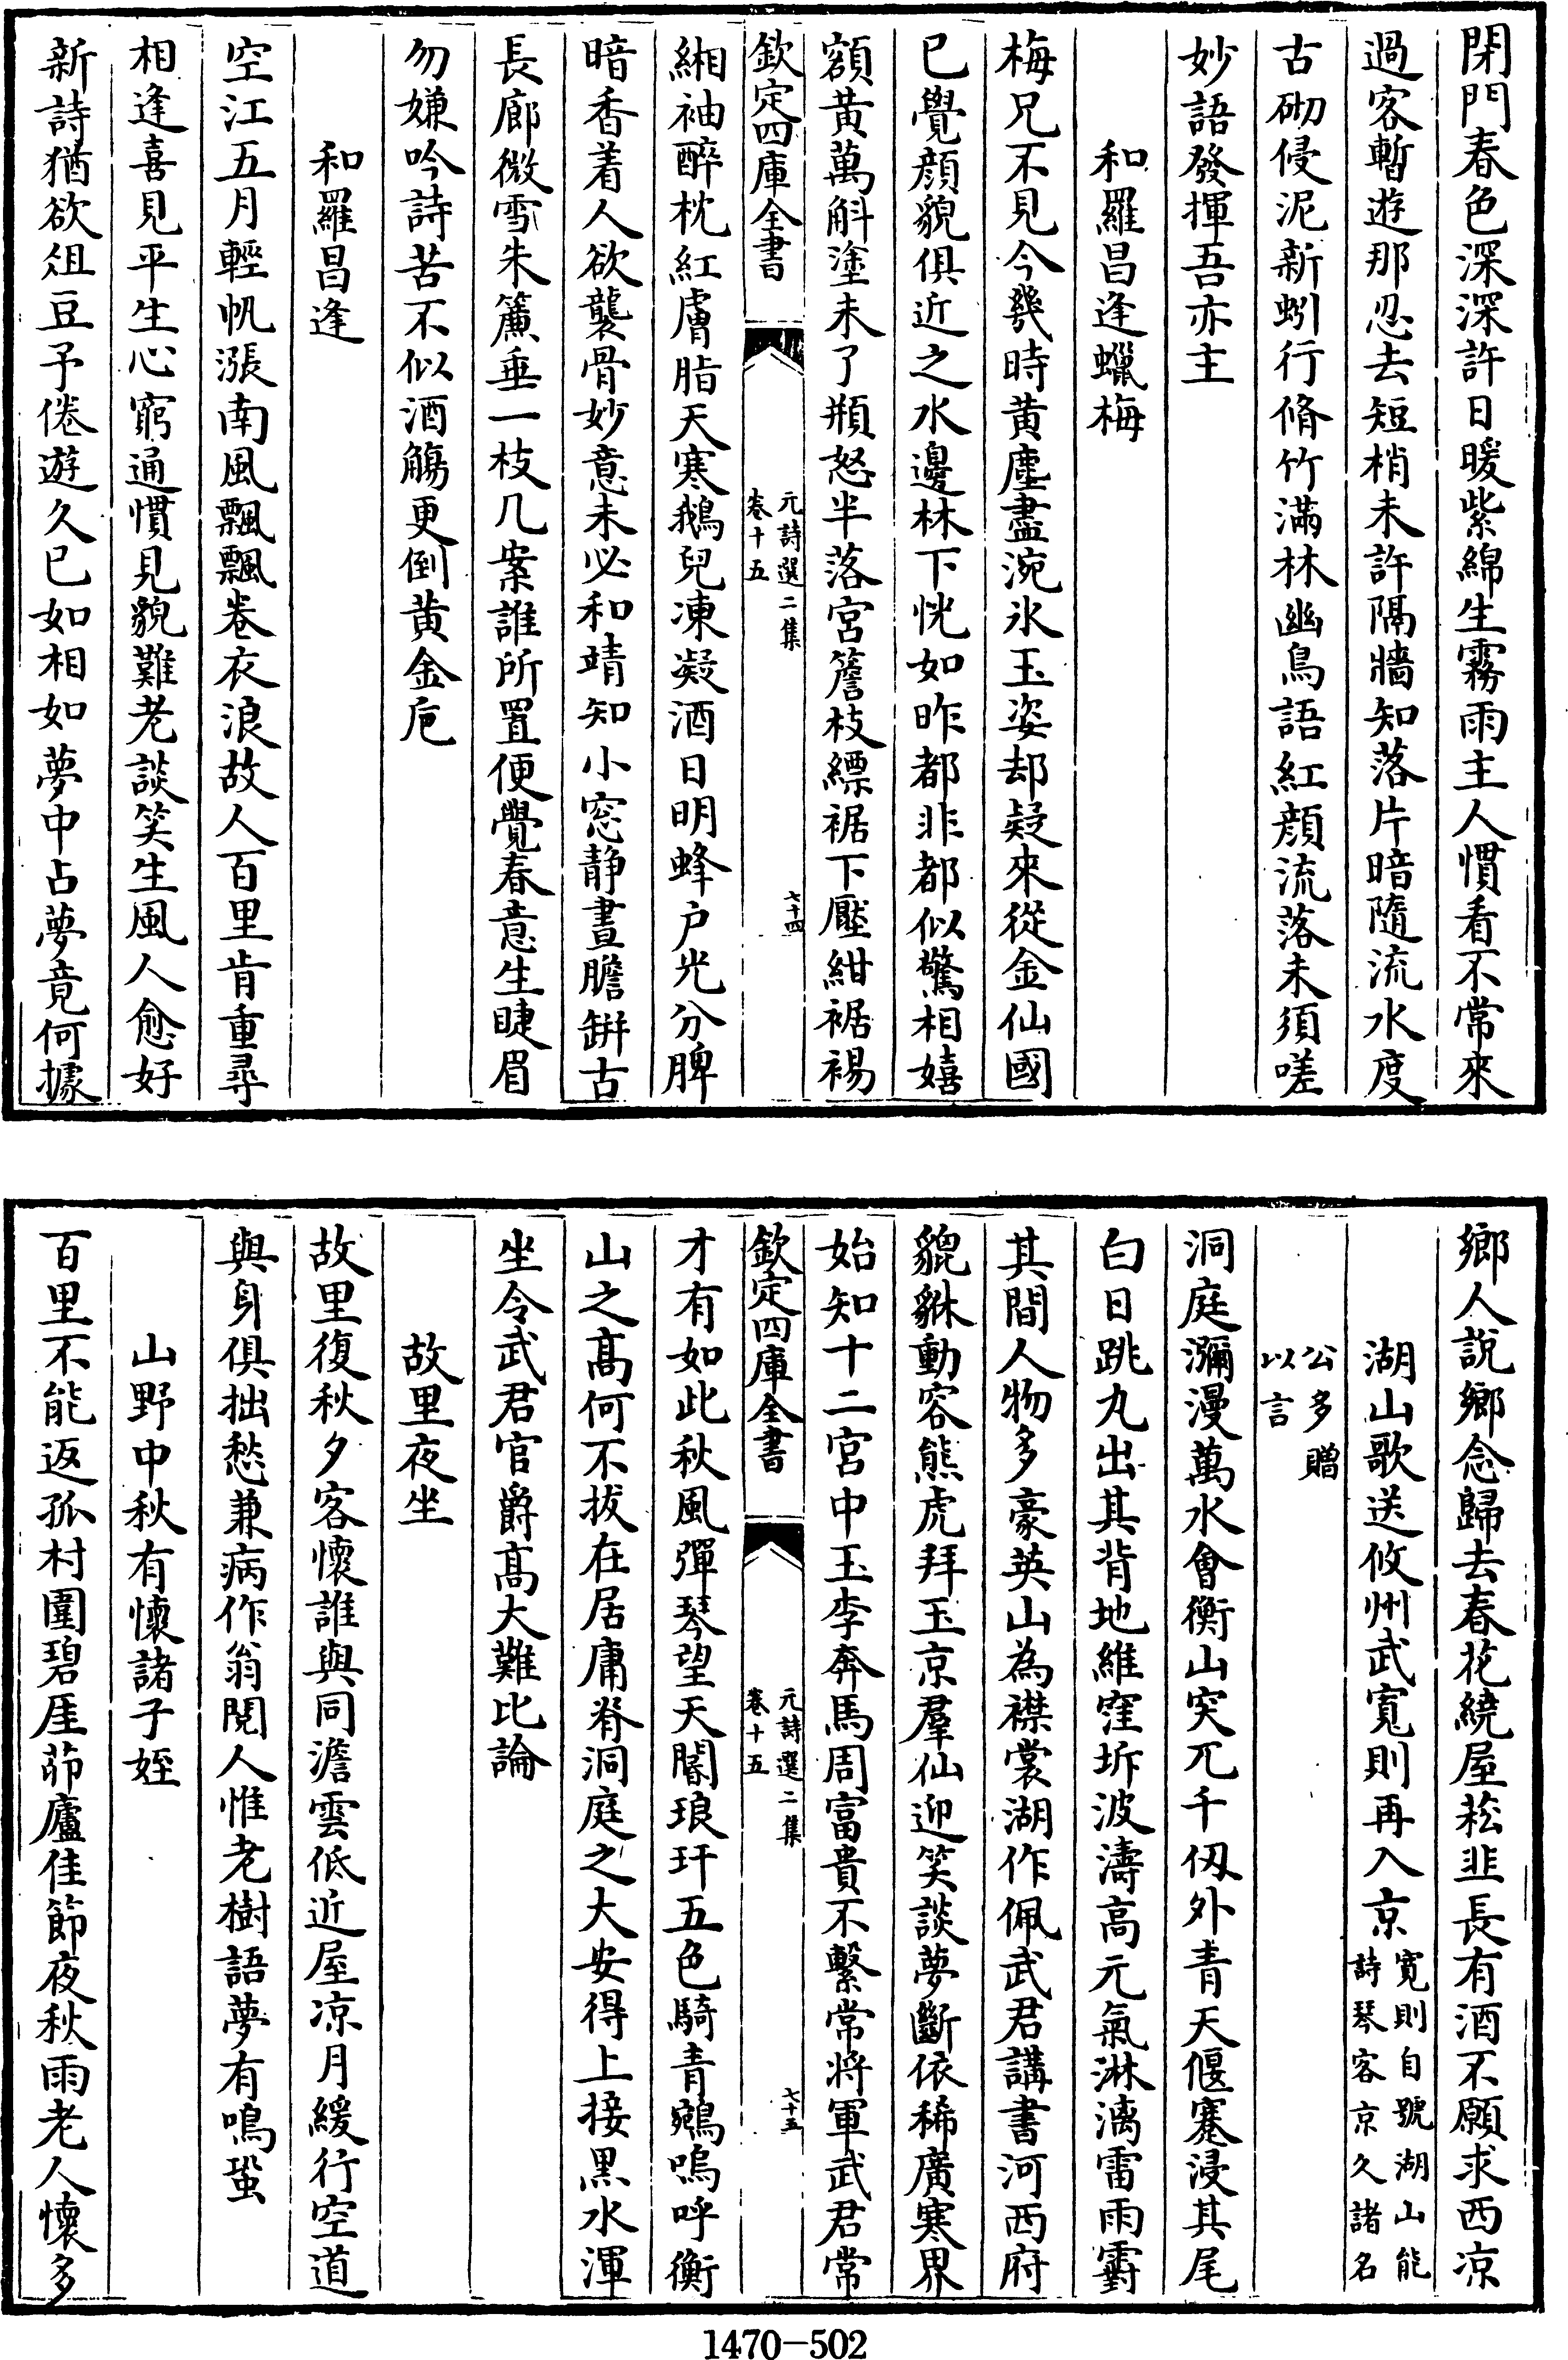 閉門春色深深許日暖紫綿生霧雨主人慣看不常來
過客暫遊那忍去短梢未許隔牆知落片暗隨流水度
古砌侵泥新蚓行脩竹滿林幽鳥語紅顔流落未須嗟
妙語發揮吾亦主
和羅昌逢蠟梅
梅兄不見今幾時黄塵盡涴氷玉姿却疑來從金仙國
已覺顔貌俱近之水邊林下恍如昨都非都似驚相嬉
額黄萬斛塗未了頩怒半落宫簷枝縹裾下壓紺裾裼
欽定四庫全書
元詩選二集
卷十五
七十四
緗袖醉枕紅膚脂天寒鵝兒凍凝酒日明蜂户光分脾
暗香着人欲襲骨妙意未必和靖知小窓静晝膽缾古
長廊微雪朱簾垂一枝几案誰所置便覺春意生睫眉
勿嫌吟詩苦不似酒觴更倒黄金巵
和羅昌逢
空江五月輕帆漲南風飄飄卷衣浪故人百里肯重尋
相逢喜見平生心窮通慣見貌難老談笑生風人愈好
新詩猶欲俎豆予倦遊久已如相如夢中占夢竟何據
鄉人說鄉念歸去春花繞屋菘韭長有酒不願求西凉
湖山歌送攸州武寬則再入京
寛則自號湖山能
詩琴客京久諸名
公多贈
以言
洞庭瀰漫萬水會衡山突兀千仭外青天偃蹇浸其尾
白日跳丸出其背地維窪坼波濤高元氣淋漓雷雨霨
其間人物多豪英山為襟裳湖作佩武君講書河西府
貔貅動容熊虎拜玉京羣仙迎笑談夢斷依稀廣寒界
始知十二宫中玉李奔馬周富貴不繫常將軍武君常
欽定四庫全書
元詩選二集
卷十五
七十五
才有如此秋風彈琴望天闕琅玕五色騎青鵷嗚呼衡
山之髙何不拔在居庸脊洞庭之大安得上接黒水渾
坐令武君官爵髙大難比論
故里夜坐
故里復秋夕客懷誰與同澹雲低近屋凉月緩行空道
與身俱拙愁兼病作翁閱人惟老樹語夢有鳴蛩
山野中秋有懷諸子姪
百里不能返孤村圍碧厓茆廬佳節夜秋雨老人懷多
1470-502